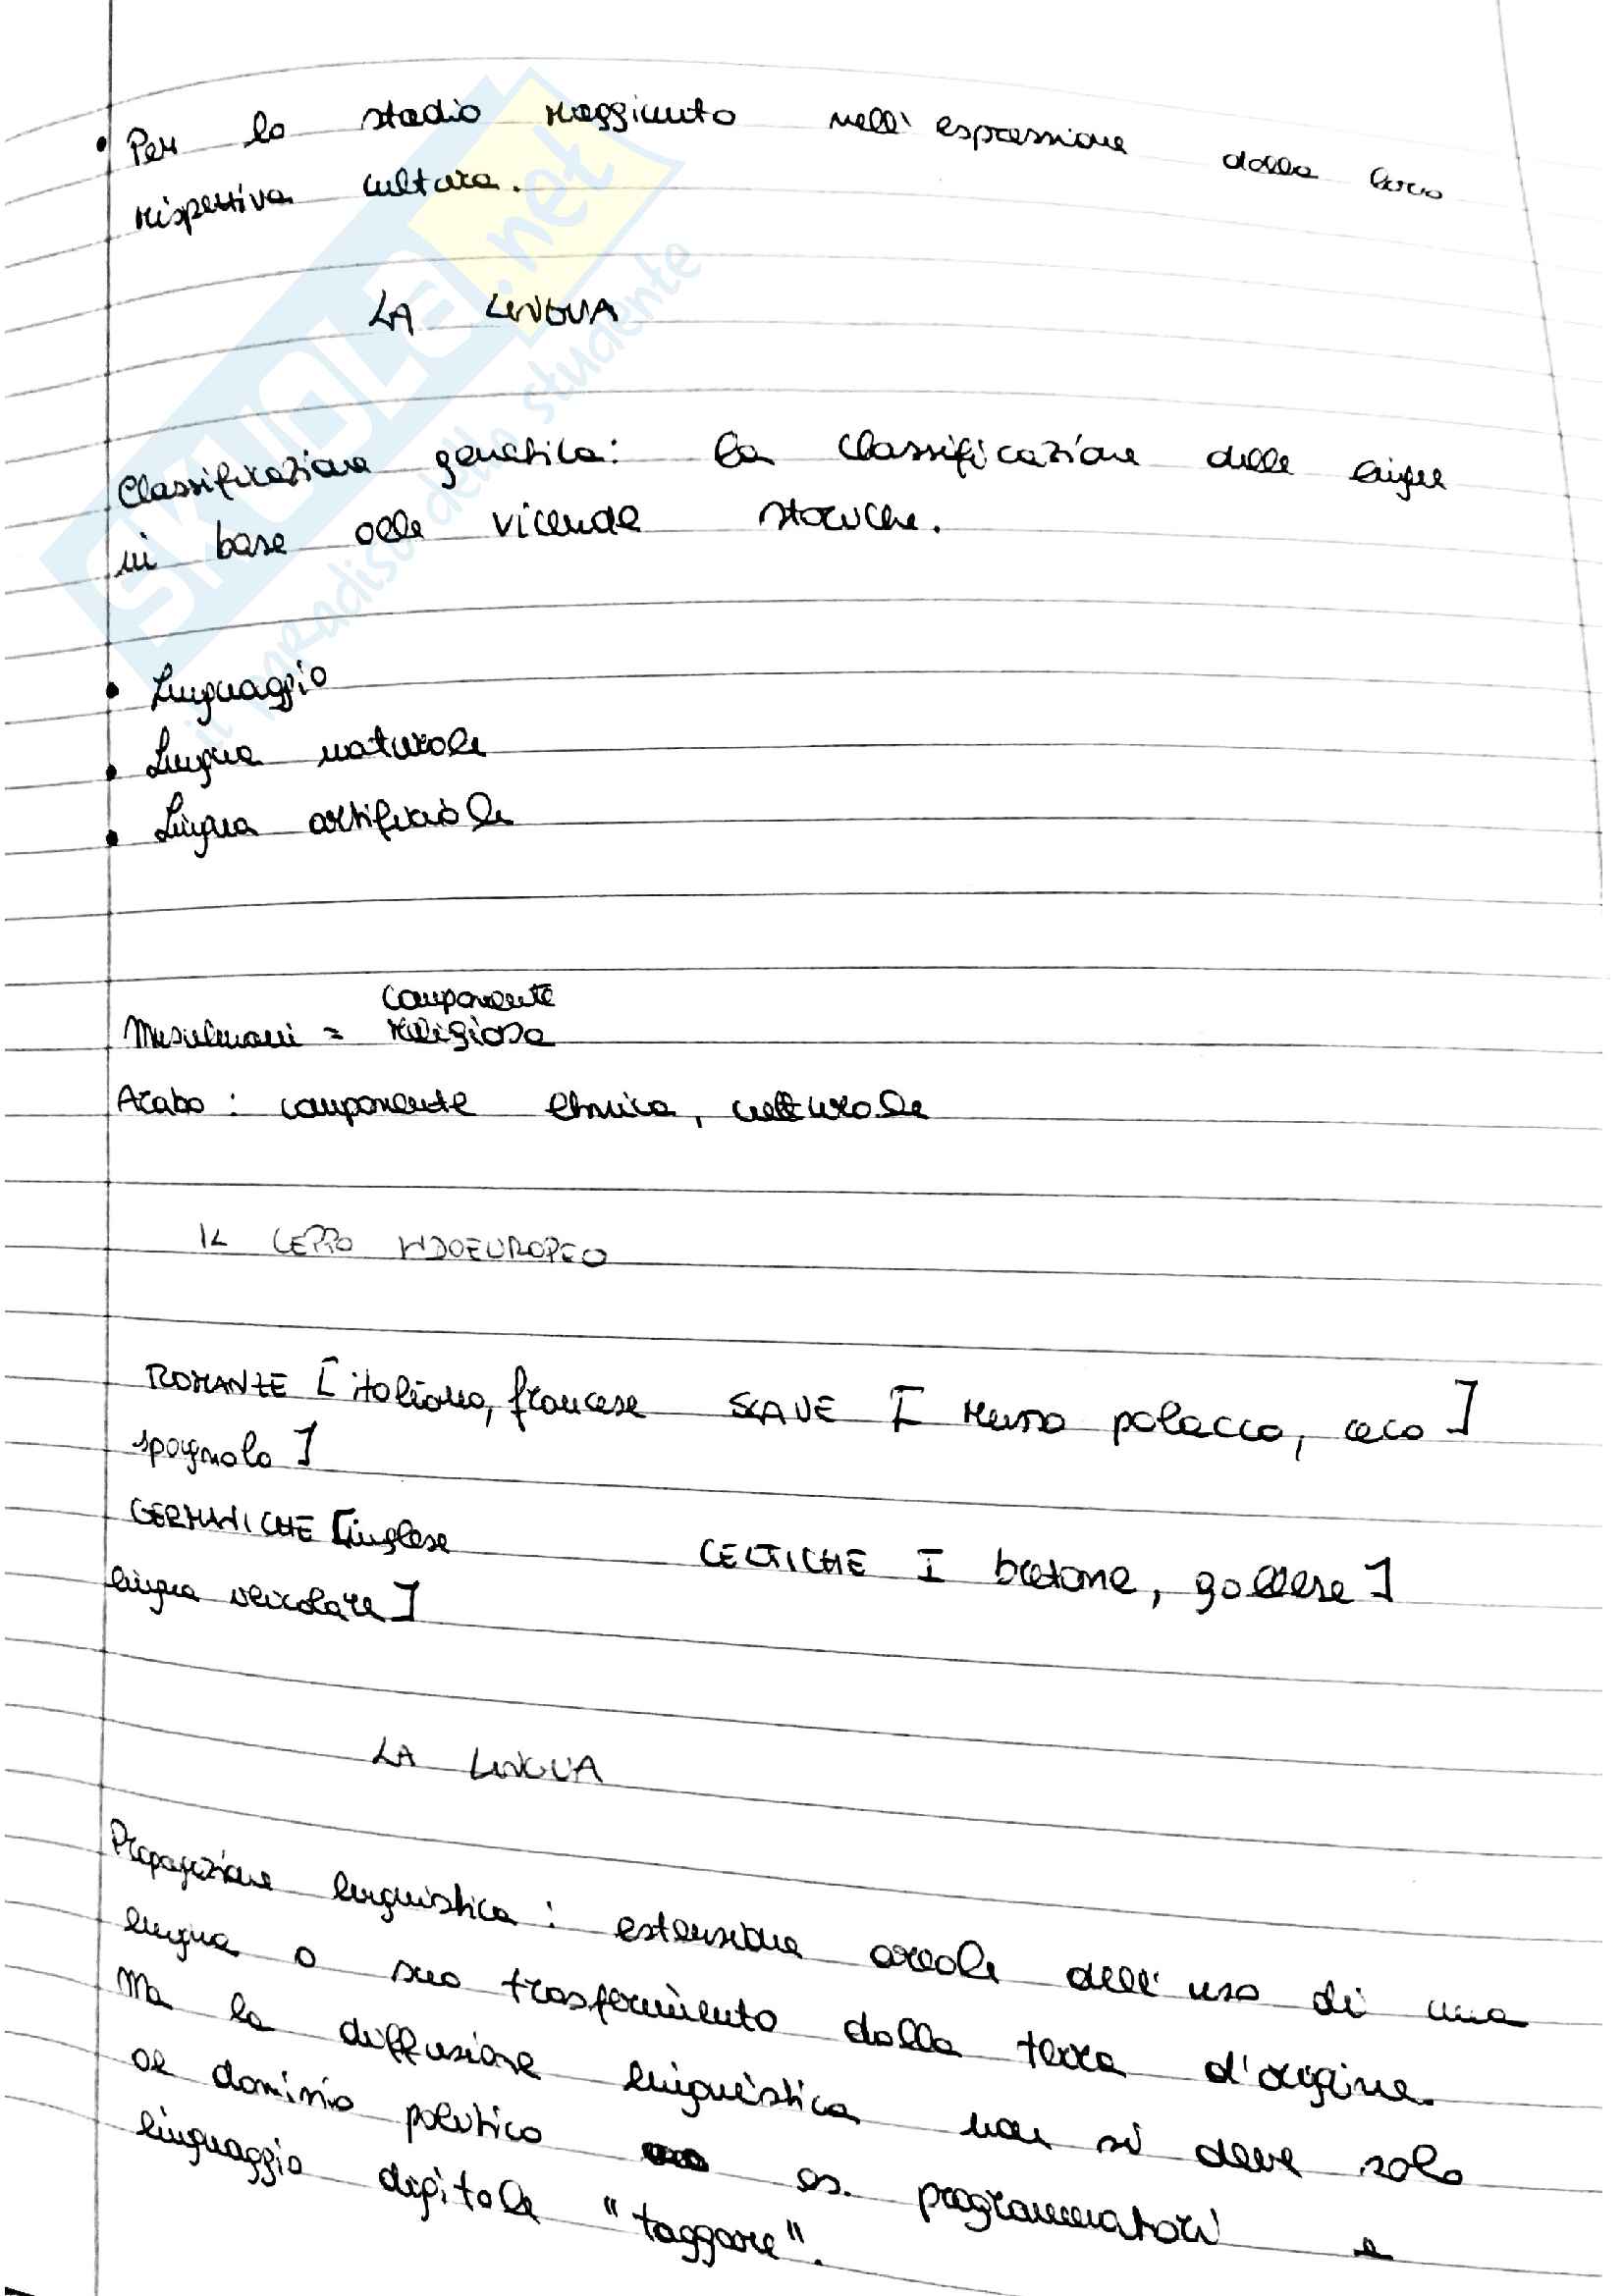 • Per lo stadio raggiunto nell'espressione della loro
rispettiva cultura.
LA LINGUA
Classificazione genetica: la classificazione delle lingue
in base alle vicende storiche.
• Linguaggio
• Lingua naturale
• Lingua artificiale
componente
Musulmani = religiosa
Arabo : componente etnica, culturale
IL CEPPO INDOEUROPEO
ROMANZE [italiano, francese SLAVE [russo polacco, ceco]
spagnolo]
GERMANICHE [inglese CELTICHE [bretone, gallese]
lingua veicolare]
LA LINGUA
Propagazione linguistica : estensione areale dell'uso di una
lingua o suo trasferimento dalla terra d'origine.
Ma la diffusione linguistica non si deve solo
al dominio politico es. programmatori e
linguaggio digitale "taggare".
SKUOLA.net
il paradiso dello studente